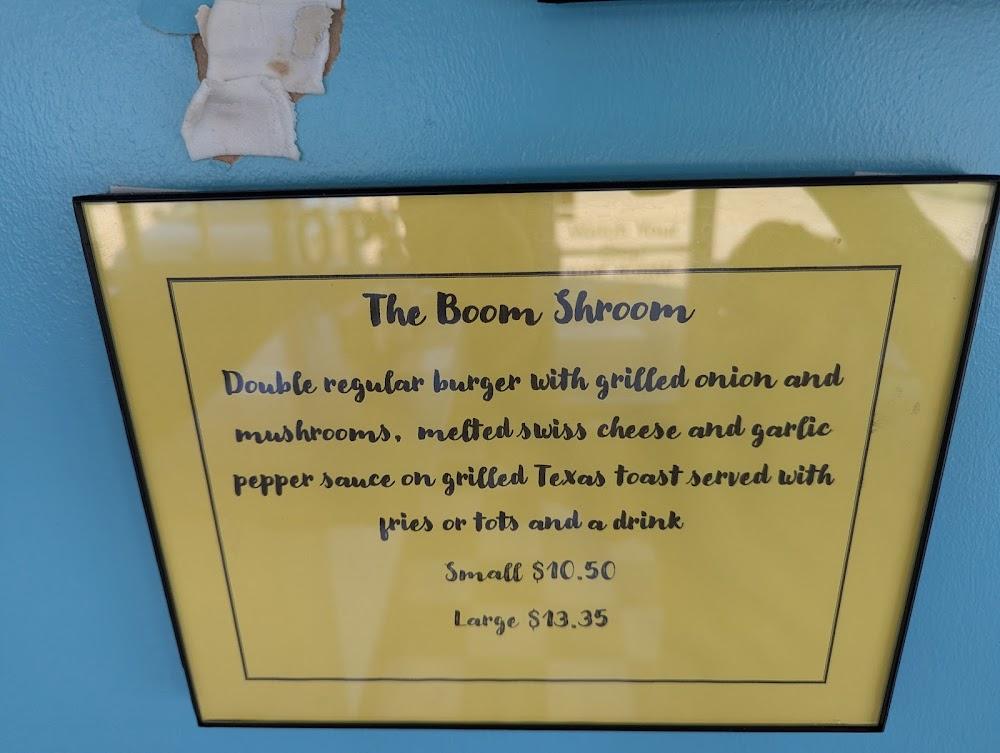 The Boom Shroom
Double regular burger with grilled onion and
mushrooms, melted swiss cheese and garlic
pepper sauce on grilled Texas toast served with
fries or tots and a drink
Small $10.50
Large $13.35